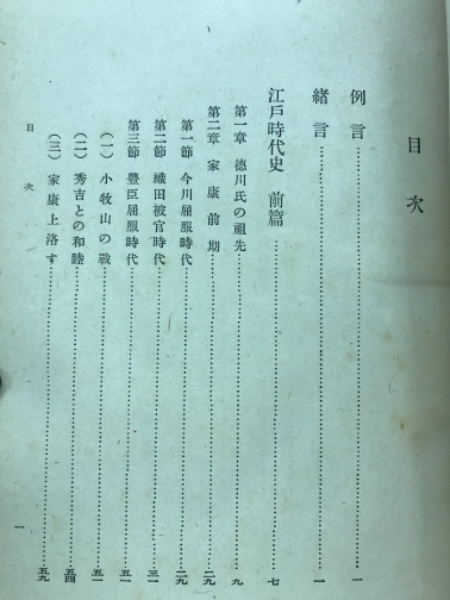 目次
例言……一
緒言……一
江戸時代史 前篇……七
第一章 徳川氏の祖先……九
第二章 家康前期……二九
第一節 今川屈服時代……二九
第二節 織田被官時代……三一
第三節 豐臣屈服時代……五一
(一) 小牧山の戰……五一
(二) 秀吉との和睦……五四
(三) 家康上洛す……五九
目次
一